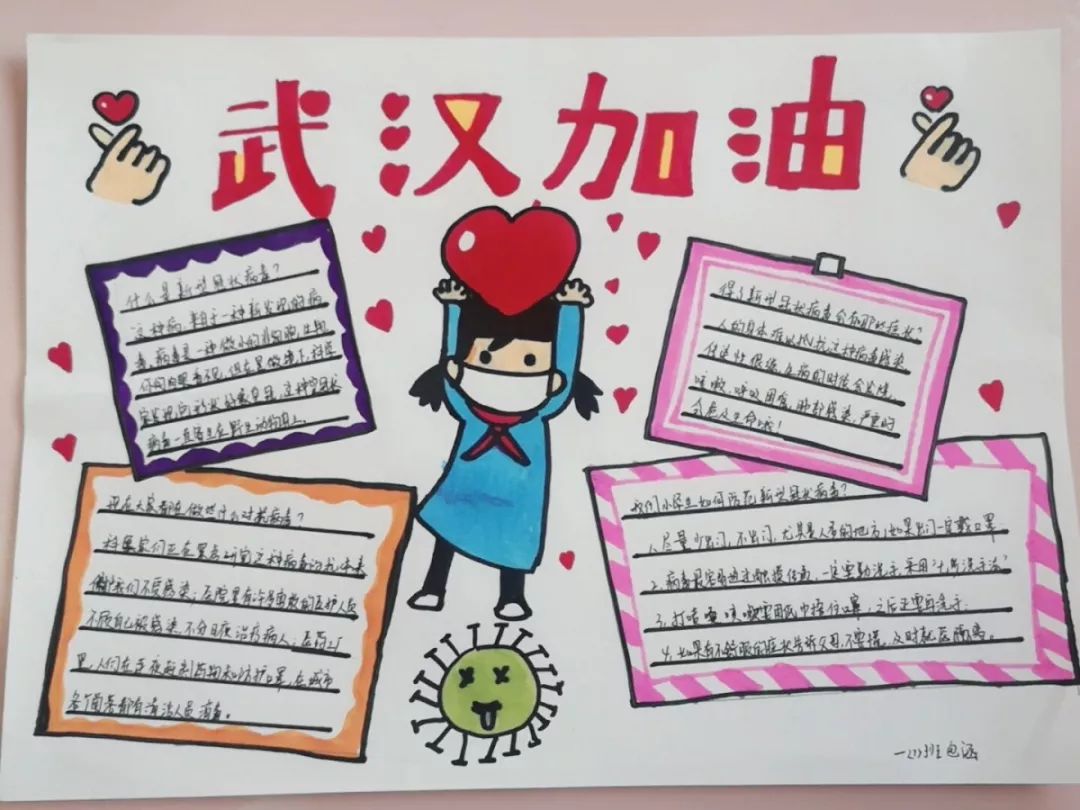 武汉加油
什么是新型冠状病毒?
这种病,来自一种新发现的病
毒,病毒是一种微小的非细胞,生物
你用肉眼看不见,但在显微镜下,科学
家发现它形状像戴皇冠,这种冠状
病毒一直寄生在野生动物身上。
得了新型冠状病毒会有哪些症状?
人的身体难以抵抗这种病毒感染
传染性很强,生病的时候会发烧,
咳嗽、呼吸困难,肺部感染,严重时
会危及生命哦!
现在大家都在做些什么对抗病毒?
科学家们正在累点研究这种病毒的
我们不受感染,医院里有许多勇敢的医护人员
不顾自己被感染,不分日夜治疗病人;医药工厂
里,人们在连夜赶制药物和防护口罩,在城市
各个角落都有清洁人员消毒。
我们小学生如何防范新型冠状病毒?
1.尽量少出门,不出门,尤其是人多的地方,如果出门一定戴口罩
2.病毒最容易通过触摸传染,一定要勤洗手,采用"七步洗手法"
3.打喷嚏,咳嗽要用纸巾捂住口鼻,之后还要再洗手
4.如果有不舒服的症状告诉父母,不要慌,及时就医隔离。